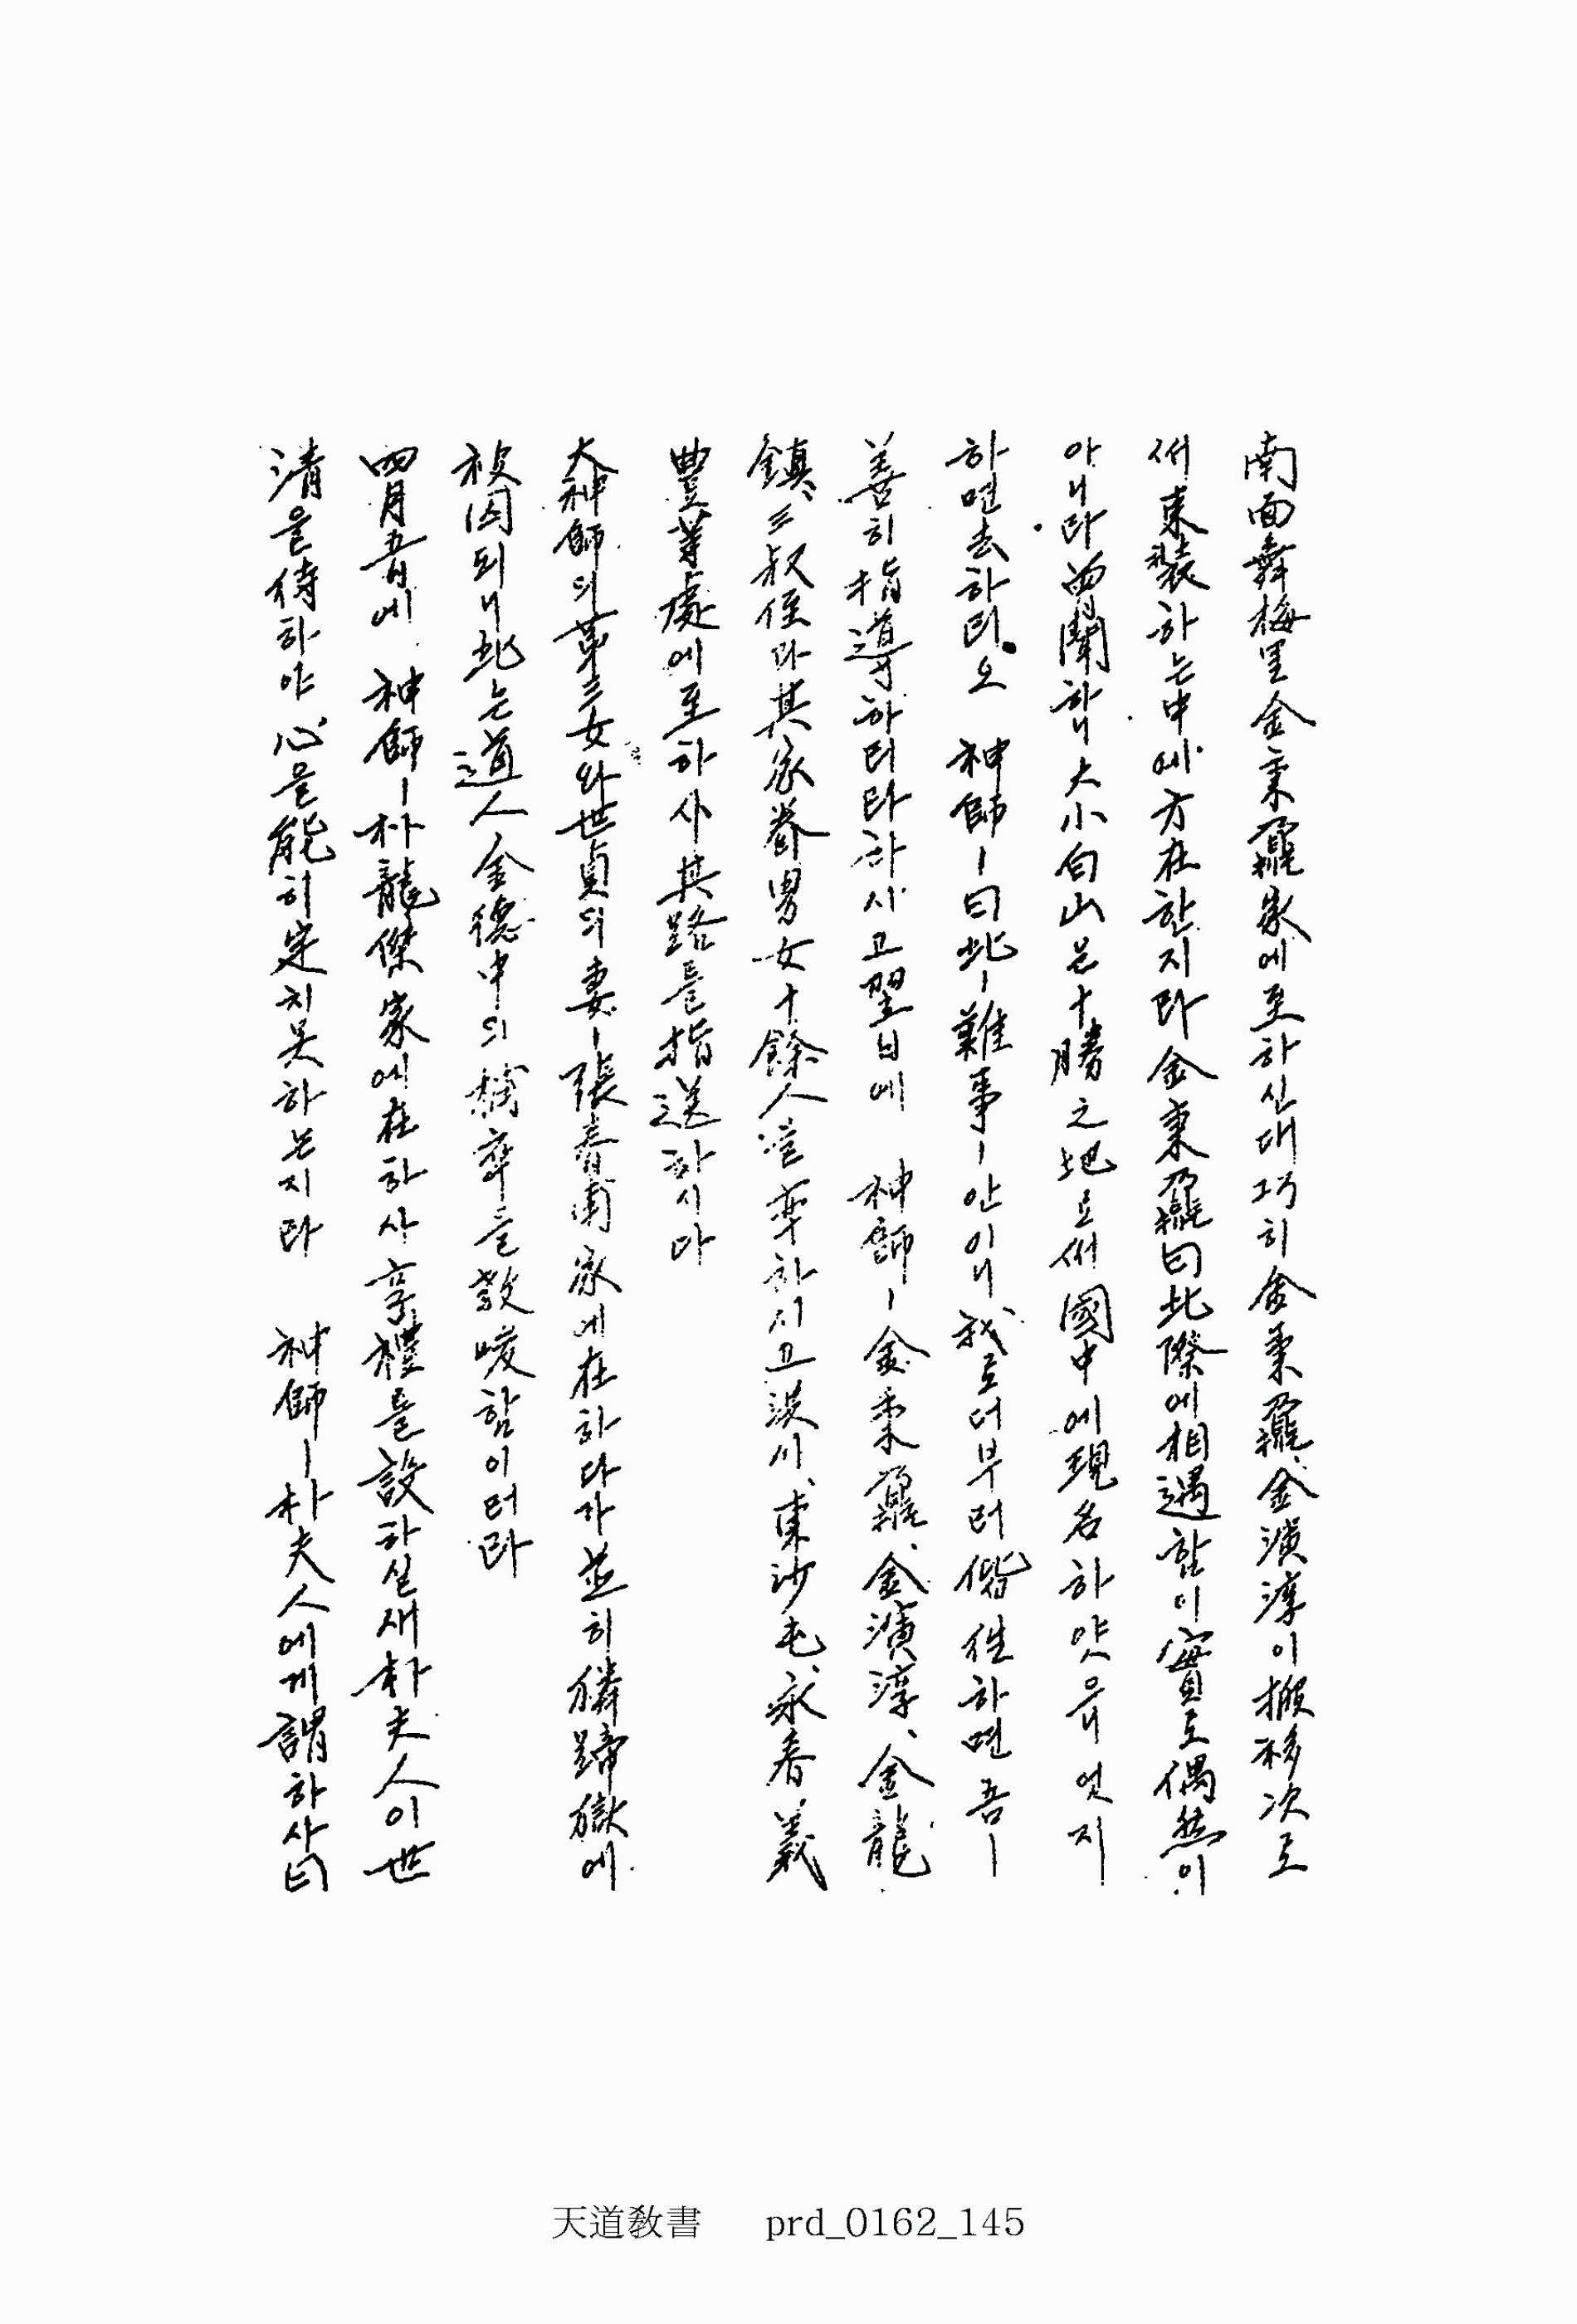 南面舞梅里金秉鼐家에至하신대巧히金秉鼐、金演淳이搬移次로
써束裝하는中에方在한지라金秉鼐曰此際에相遇함이實로偶然이
아니라曾聞하니大小白山은十勝之地로써國中에現名하얏으니엇지
하면去하리오 神師ㅣ曰此ㅣ難事ㅣ안이니我로더부러偕往하면吾ㅣ
善히指導하리라하시고翌日에 神師ㅣ金秉鼐、金演淳、金龍
鎭、三叔侄과其家眷男女十餘人을率하시고淡川、東沙屯、永春義
豊等處에至하사其路를指送하시다
大神師의第三女와世貞의妻ㅣ張春甫家에在하다가並히麟蹄獄에
被囚되니此는道人金德中의橫卒를敎唆함이러라
四月五日에 神師ㅣ朴龍傑家에在하사享禮를設하실새朴夫人이世
淸을侍하야心을能히定치못하는지라 神師ㅣ朴夫人에게謂하사曰
天道敎書 prd_0162_145